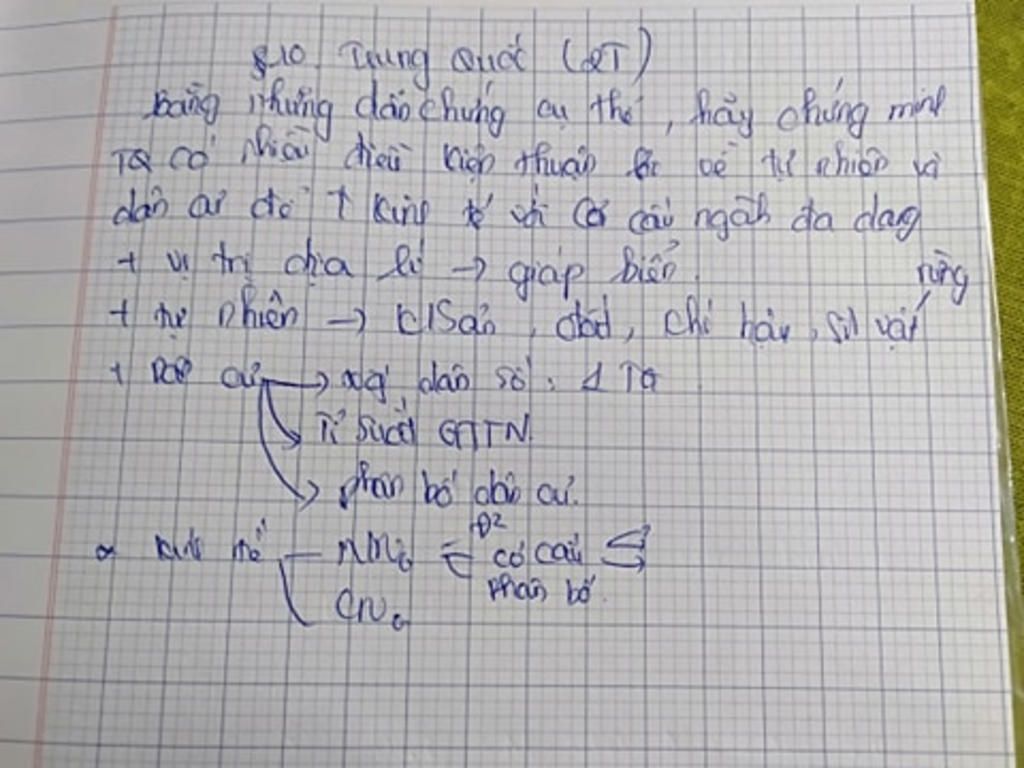 §10. Trung Quốc (QT)
bằng những dẫn chứng cụ thể, hãy chứng minh
TQ có nhiều điều kiện thuận lợi về tự nhiên và
dân cư để ↑ kinh tế với cơ cấu ngành đa dạng
+ vị trí địa lí → giáp biển.
+ tự nhiên → K/Sản, đất, khí hậu, sinh vật, rừng
+ Dân cư → dân số: 1 TG
→ Tỉ suất GTTN
→ phân bố dân cư.
kinh tế — NN
Đ²
cơ cấu
phân bố.
CN